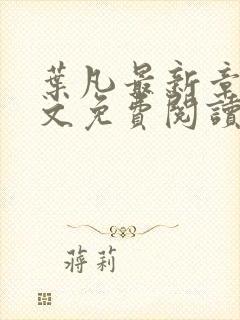 葉凡最新章
文免費閱讀
蔣莉